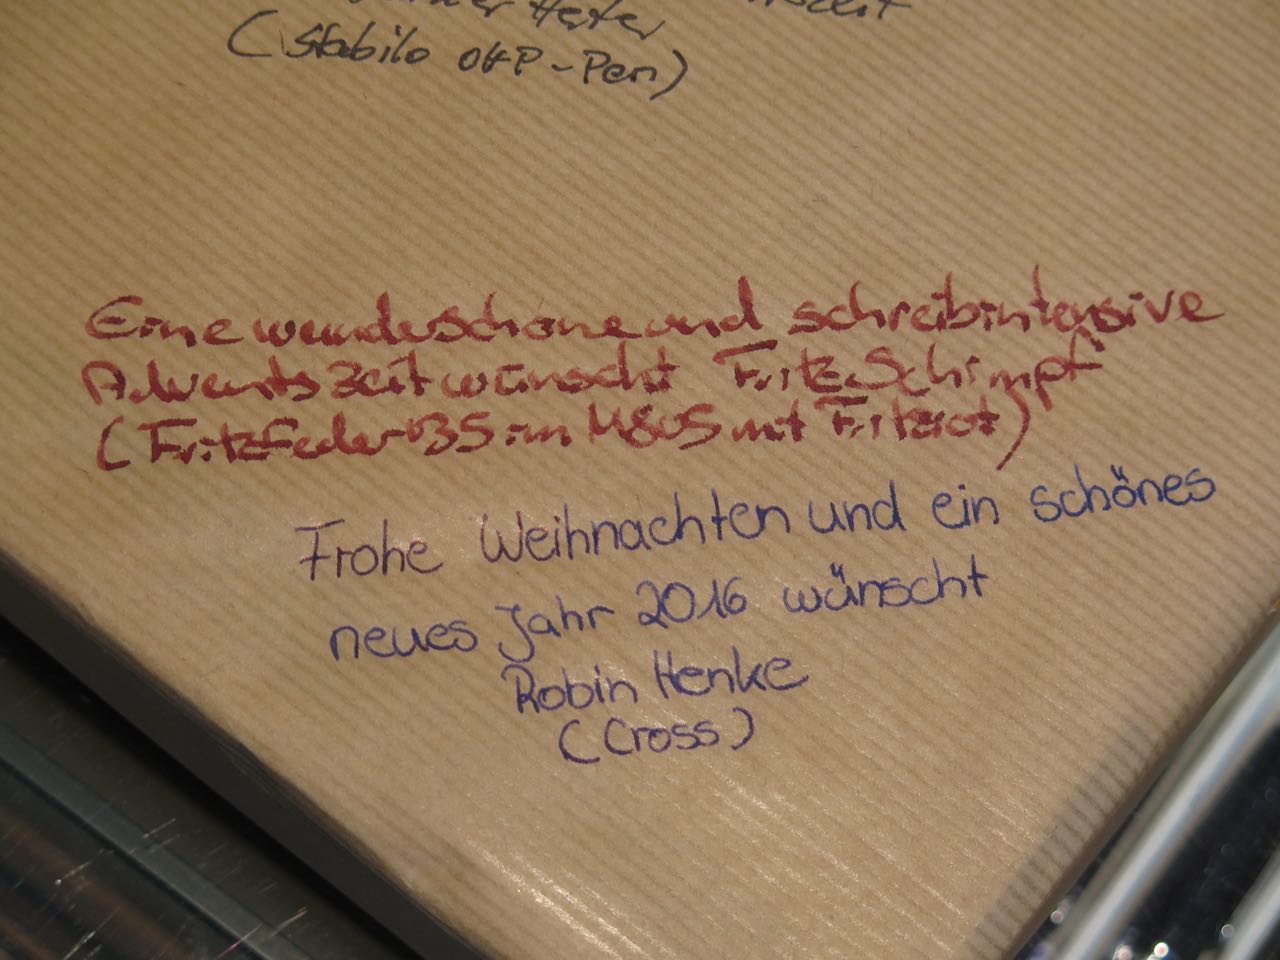 (Stabilo OHP-Pen)
Eine wunderschöne und schreibintensive
Adventszeit wünscht Fritz Schimpf
(Fritzfeder B3S im M805 mit Fritzrot)
Frohe Weihnachten und ein schönes
neues Jahr 2016 wünscht
Robin Henke
(Cross)